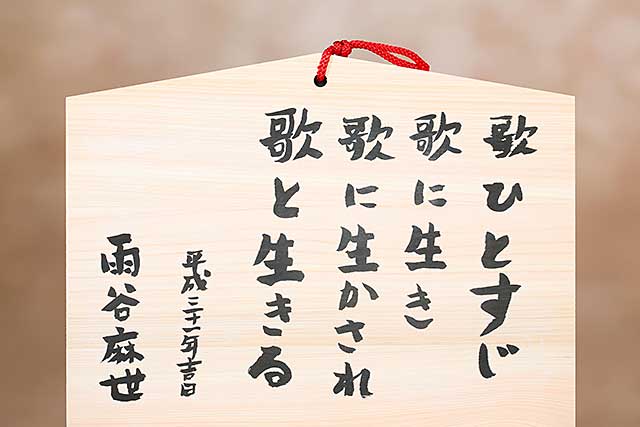 歌ひとすじ
歌に生き
歌に生かされ
歌と生きる
平成三十一年吉日
雨谷麻世